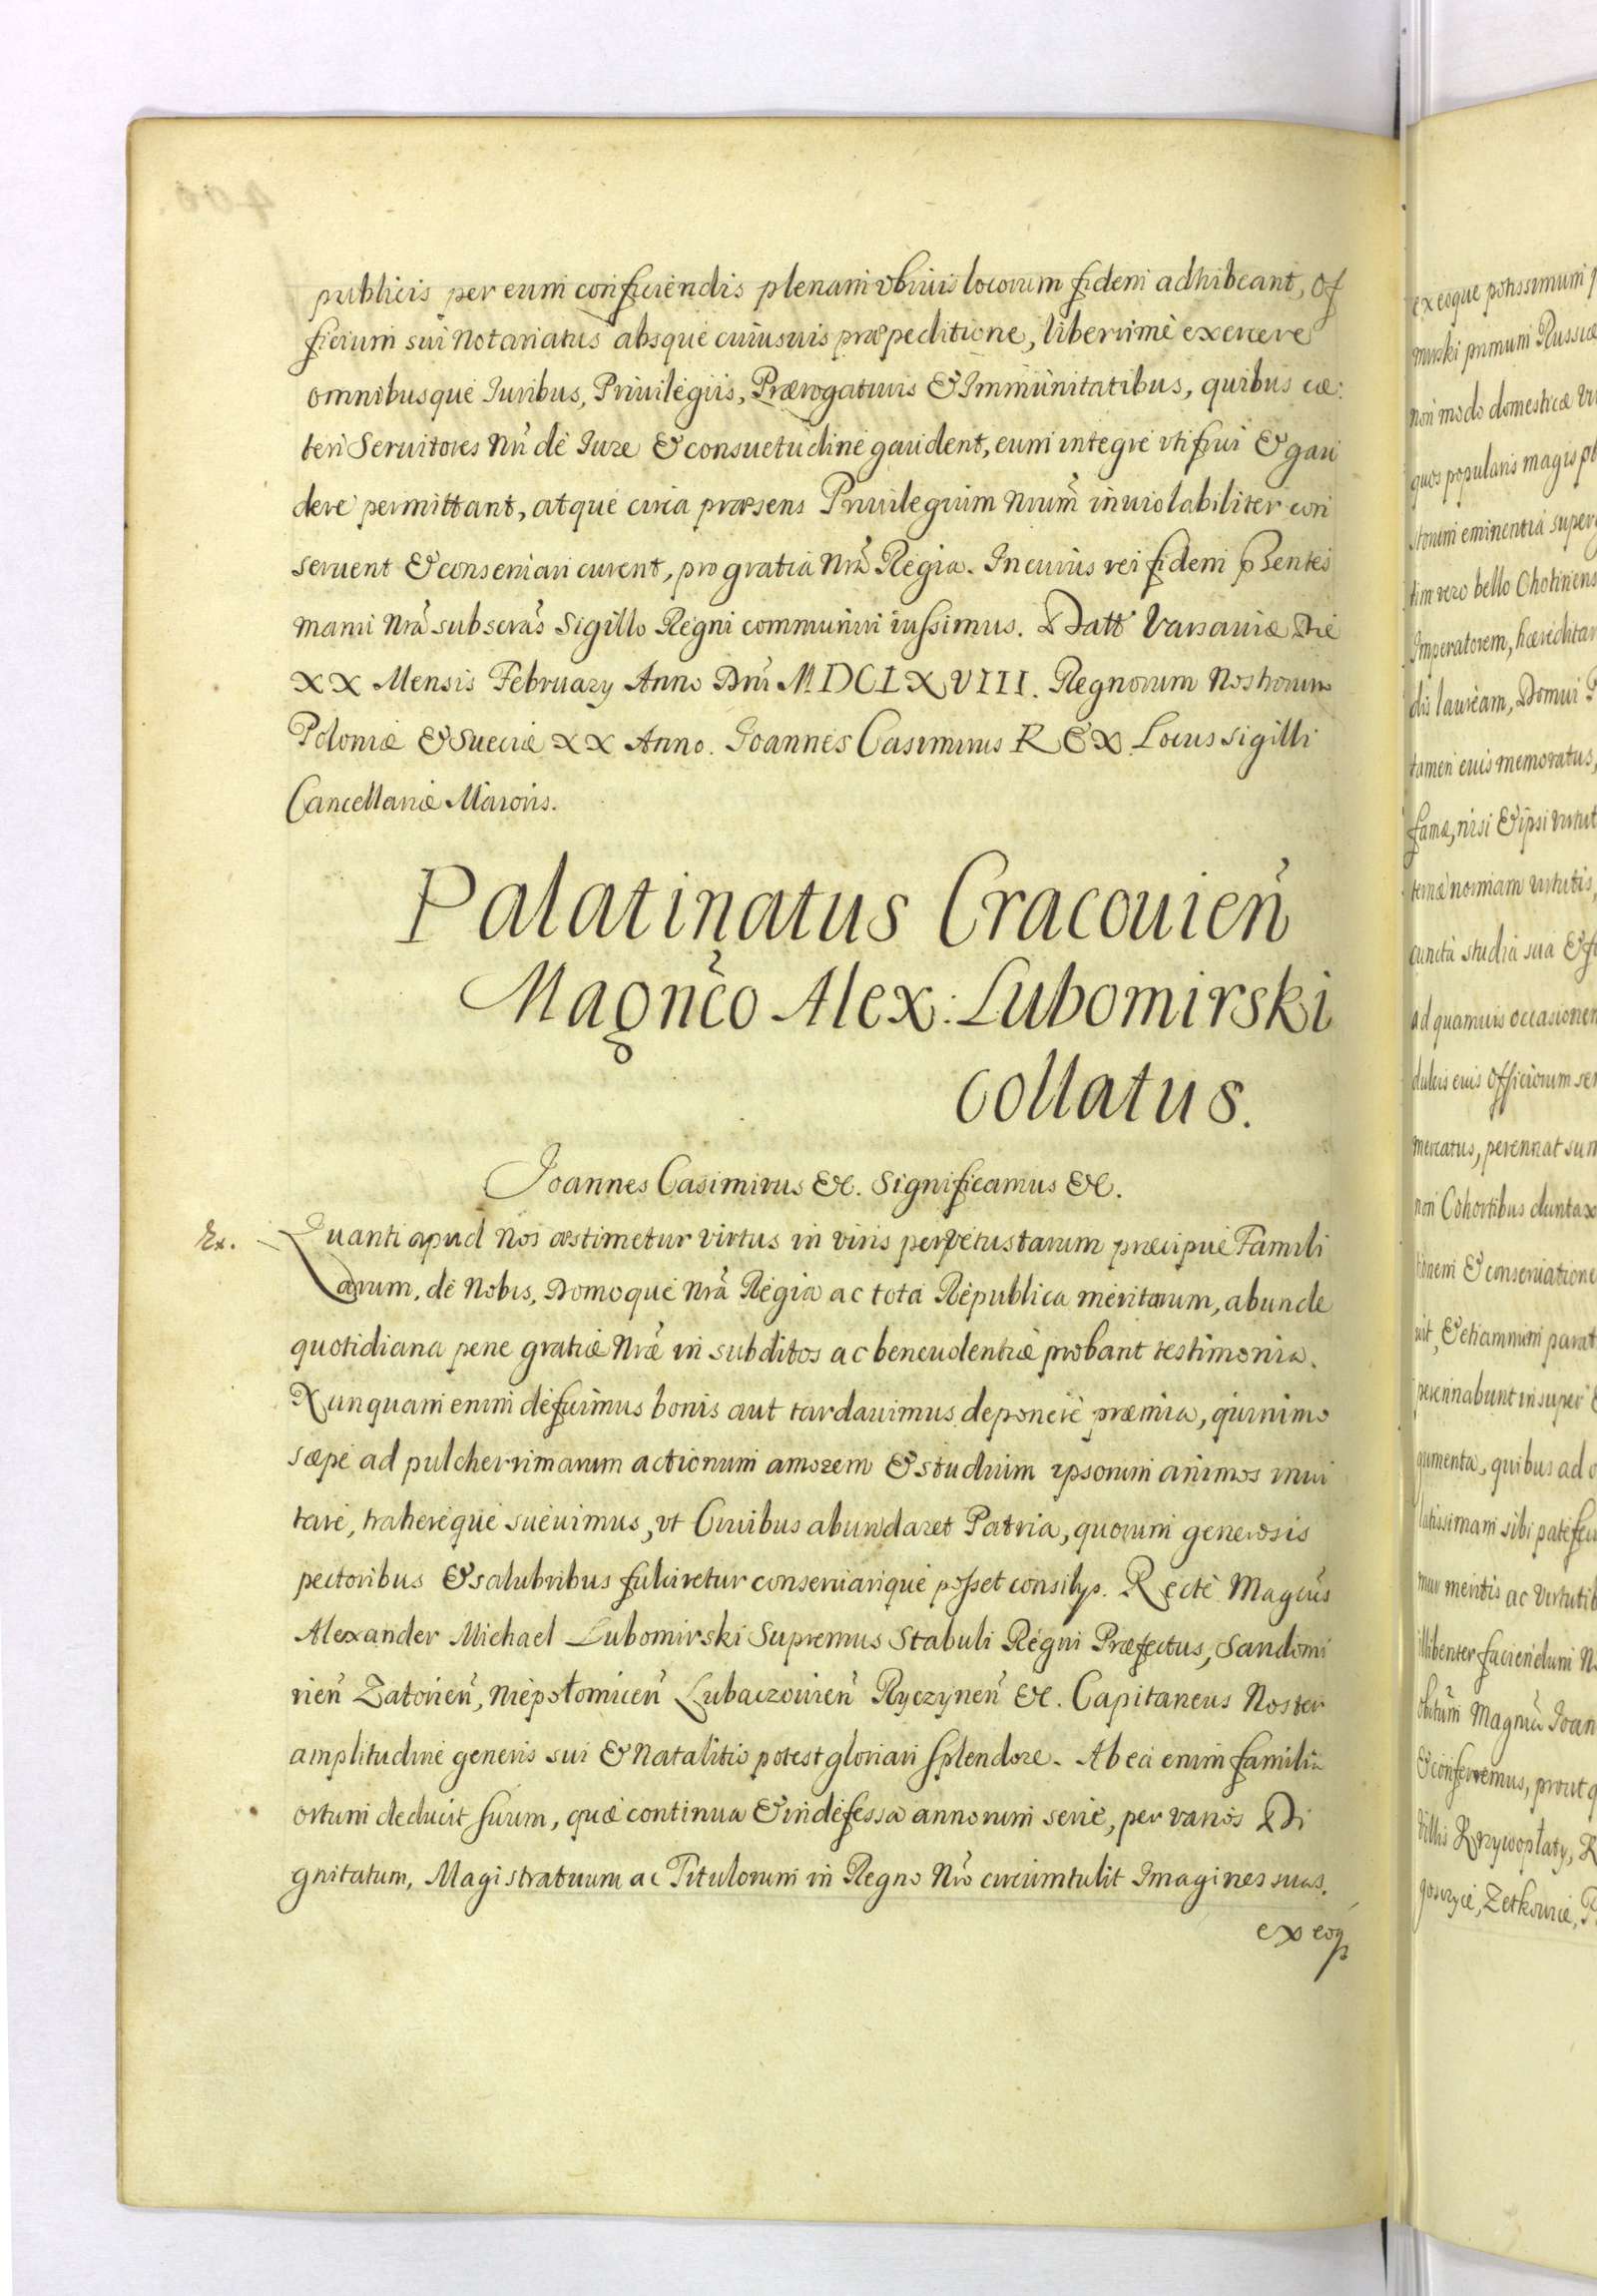 publicis per eum conficiendis plenam vbiuis locorum fidem adhibeant, Of
ficium sui Notariatus absque cuiusuis præpeditione, liberrimè exercere
omnibusque Iuribus, Priuilegiis, Prærogatiuis & Immunitatibus, quibus cæ:
teri Seruitores Nri de Iure & consuetudine gaudent, eum integre vti frui & gau
dere permittant, atque circa præsens Priuilegium Nrum inuiolabiliter con
seruent & conseruari curent, pro gratia Nra Regia. In cuius rei fidem pñtes
manu Nra subscras Sigillo Regni communiri iussimus. Datt Varsauiæ Die
XX Mensis February Anno Dni MDCLXVIII. Regnorum Nostrorum
Poloniæ & Sueciæ XX Anno. Ioannes Casimirus REX. Locus sigilli
Cancellariæ Maioris.
Palatinatus Cracouien
Magnco Alex: Lubomirski
collatus.
Ioannes Casimirus &c. Significamus &c.
Ex.
Quanti apud Nos æstimetur virtus in viris pervetustarum præcipue Famili
arum, de Nobis, Domoque Nra Regia ac tota Republica meritorum, abunde
quotidiana pene gratiæ Nræ in subditos ac beneuolentiæ probant testimonia.
Nunquam enim defuimus bonis aut tardauimus deponere præmia, quinimo
sæpe ad pulcherrimarum actionum amorem & studium ipsorum animos inui
tare, trahereque sueuimus, vt Ciuibus abundaret Patria, quorum generosis
pectoribus & salubribus fulciretur conseruarique posset consilys. Recte Magcus
Alexander Michael Lubomirski Supremus Stabuli Regni Præfectus, Sandomi
rien Zatorien, Niepołomicen Lubaczouien Ryczynen &c. Capitaneus Noster
amplitudine generis sui & Natalitio potest gloriari splendore. Ab ea enim familia
ortum deducit suum, quæ continua & indefessa annorum serie, per varios Di
gnitatum, Magistratuum ac Titulorum in Regno Nro circumtulit Imagines suas.
ex eoq
ex eoque potissimum
mirski primum Russiæ
non modo domesticæ
quos popularis magis
eminentia
tim vero bello Chotinens
Imperatorem,
dis lauream, Domui
tamen eius memoratus,
famæ, nisi & ipsi
ternæ virtutis,
cuncta studia sua &
ad quamuis occasionem
eius Officiorum
mercatus, perennat
non Cohortibus
& conseruatione
&
perennabunt insuper
quibus ad
latissimam sibi
meritis ac virtutib
illibenter faciendum
Magnci Ioan
& conferremus, prout
Krzywopłaty,
Zetkowice,